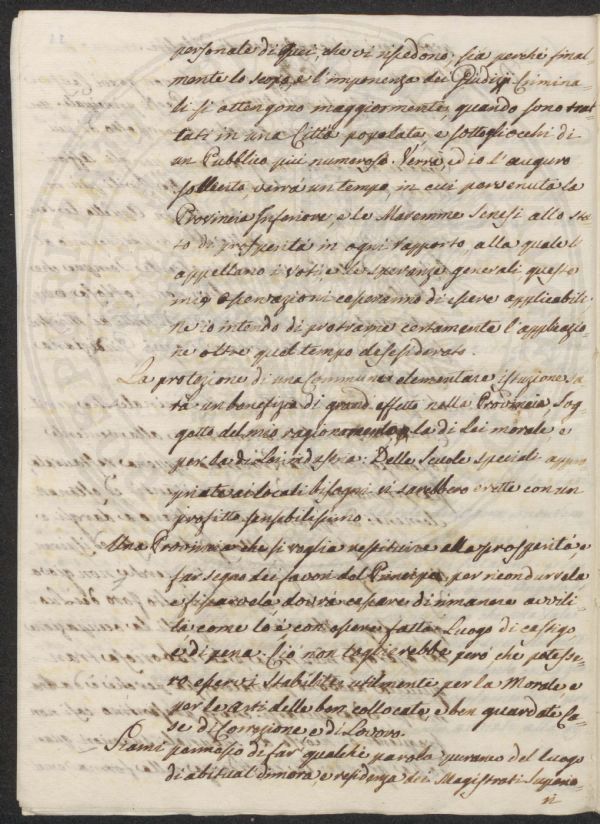 personale di quei, che vi risiedono; sia perchè final-
mente lo scopo, e l'imponenza dei Giudizj Crimina-
li si ottengono maggiormente, quando sono trat-
tati in una Città popolata, e sottogliocchi di
un Pubblico più numeroso. Verrà, ed io l'auguro
sollecito, verrà un tempo, in cui pervenuta la
Provincia Inferiore, e le Maremme Senesi allo sta-
to di prosperità in ogni rapporto, alla quale l'
appellano i voti, e le speranze generali queste
mie osservazioni cesseranno di essere applicabili
ne io intendo di protrarne certamente l'applicazio-
ne oltre quel tempo desiderato.
La protezione di una Comune elementare istruzione sa-
rà un benefizio di grand'effetto nella Provincia Sog-
getto del mio ragionamento, la di Lei morale, e
per la di Lei
Delle Scuole speciali appro-
priate ai locali bisogni vi sarebbero erette con un
profitto sensibilissimo.
Una Provincia che si voglia restituire alla prosperità e
far segno dei favori del Principe, per ricondurvela
e fissarvela dovrà cessare di rimanere avvili-
ta come lo è con essere fatta Luogo di castigo
e di pena. Ciò non toglierebbe però che potesse-
ro esservi stabilite utilmente per la Morale e
per le arti delle ben collocate, e ben guardate Ca-
se di Correzione e di Lavoro.
Siami permesso di far qualche parola puranco del luogo
di abitual dimora, e residenza dei Magistrati Superio-
ri